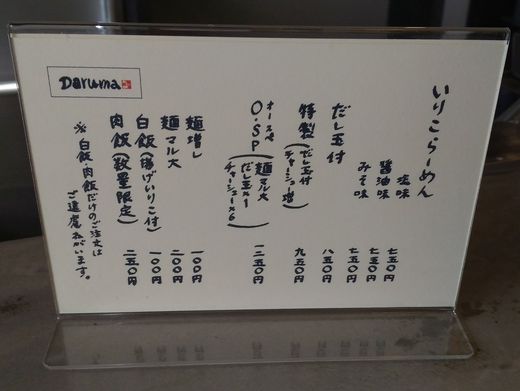 いりこらーめん
塩味 七五〇円
醤油味 七五〇円
みそ味 七五〇円
だし玉付 八五〇円
特製(だし玉付 チャーシュー増) 九五〇円
オースペ
O・SP(麺マル大 だし玉×1 チャーシュー×6) 一二五〇円
麺増し 一〇〇円
麺マル大 二〇〇円
白飯(揚げいりこ付) 一〇〇円
肉飯(数量限定) 二五〇円
※白飯、肉飯だけのご注文は
ご遠慮ねがいます。
Daruma